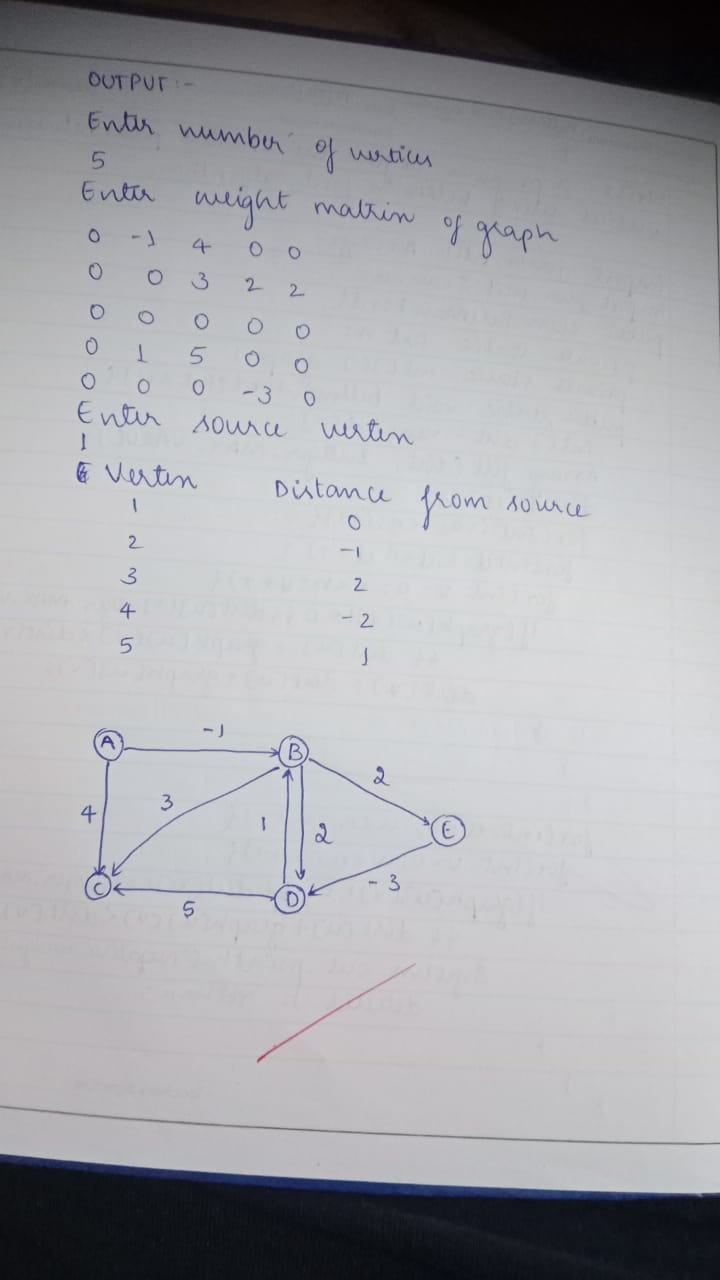 OUTPUT :-
Enter number of vertices
5
Enter weight matrix of graph
0 -1 4 0 0
0 0 3 2 2
0 0 0 0 0
0 1 5 0 0
0 0 0 -3 0
Enter source vertex
1
Vertex Distance from source
1 0
2 -1
3 2
4 -2
5 1
A -1 B
4 3 1 2 2
E
C 5 D -3